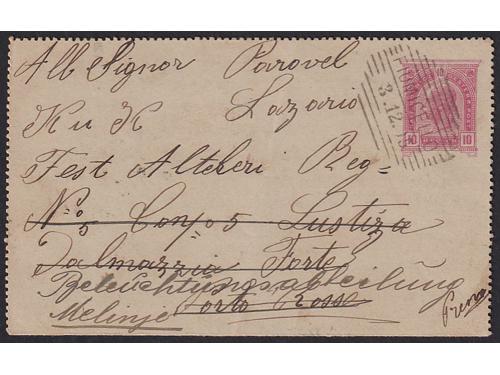 All Signor Parovel
Lazario
K u K
Fest Altileri Reg=
No 5 Comp 5 Lustiza
Dalmazzia Forte
Beleuchtungsabteilung
Melinje Porto Rosse
10 10
3.12.